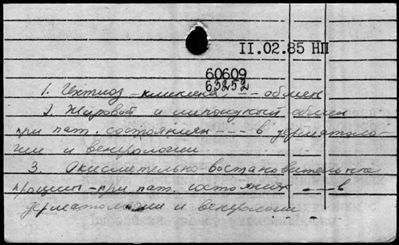 II.02.85 НП
60609
63252
1. Ихтиоз - клиника, --- обмен
2. Жировой и липоидный обмен
при пат. состояниях --- в дерматоло-
гии и венерологии
3. Окислительно-восстановительные
процессы - при пат. состояниях --- в
дерматологии и венерологии